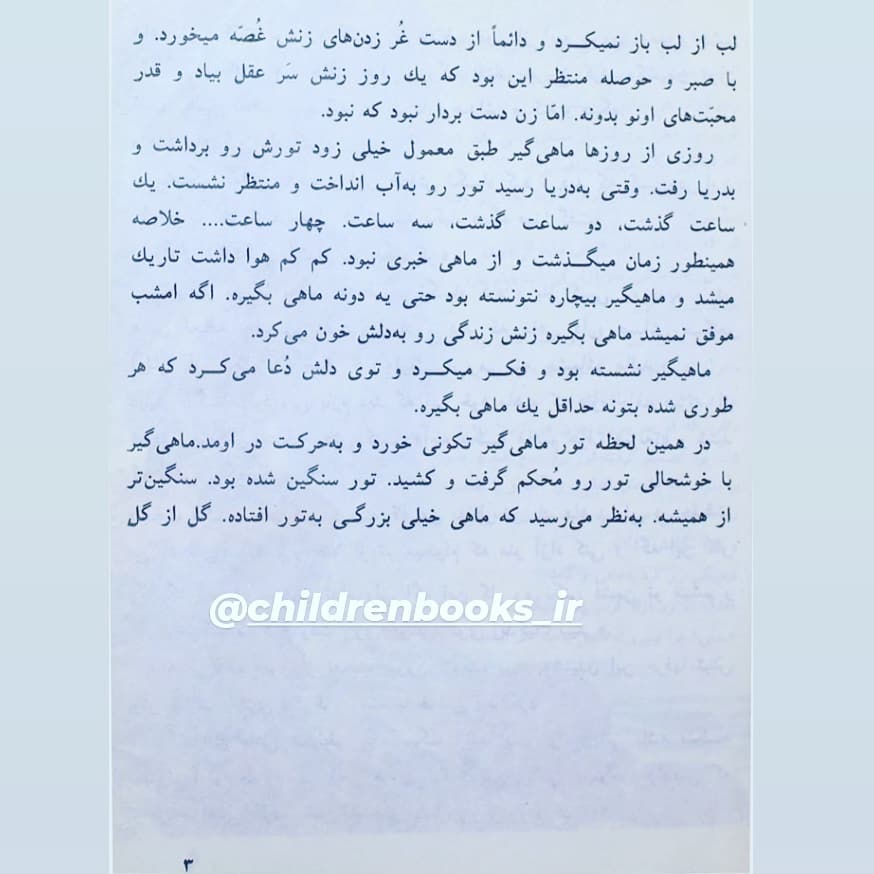 لب از لب باز نمیکرد و دائماً از دست غُر زدن‌های زنش غُصّه میخورد. و
با صبر و حوصله منتظر این بود که یك روز زنش سَر عقل بیاد و قدر
محبّت‌های اونو بدونه. امّا زن دست بردار نبود که نبود.
روزی از روزها ماهی‌گیر طبق معمول خیلی زود تورش رو برداشت و
بدریا رفت. وقتی به‌دریا رسید تور رو به‌آب انداخت و منتظر نشست. یك
ساعت گذشت، دو ساعت گذشت، سه ساعت. چهار ساعت.... خلاصه
همینطور زمان میگذشت و از ماهی خبری نبود. کم کم هوا داشت تاریك
میشد و ماهیگیر بیچاره نتونسته بود حتی یه دونه ماهی بگیره. اگه امشب
موفق نمیشد ماهی بگیره زنش زندگی رو به‌دلش خون می‌کرد.
ماهیگیر نشسته بود و فکر میکرد و توی دلش دُعا می‌کرد که هر
طوری شده بتونه حداقل یك ماهی بگیره.
در همین لحظه تور ماهی‌گیر تکونی خورد و به‌حرکت در اومد.ماهی‌گیر
با خوشحالی تور رو مُحکم گرفت و کشید. تور سنگین شده بود. سنگین‌تر
از همیشه. به‌نظر می‌رسید که ماهی خیلی بزرگی به‌تور افتاده. گل از گلِ
@childrenbooks_ir
۳